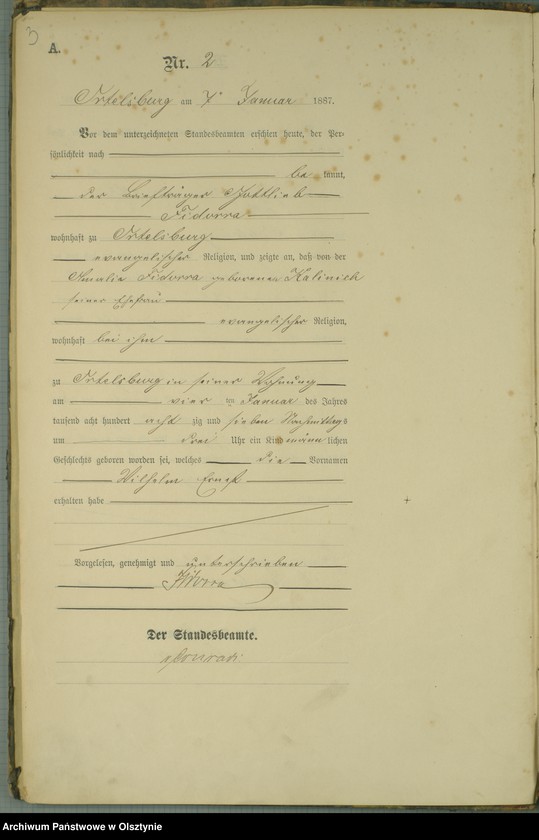 3
A.
Nr. 2
Ortelsburg am 7. Januar 1887.
Vor dem unterzeichneten Standesbeamten erschien heute, der Per-
sönlichkeit nach
be kannt,
der Briefträger Gottlieb
Fidorra
wohnhaft zu Ortelsburg
evangelischer Religion, und zeigte an, daß von der
Amalie Fidorra geborenen Kalinich
seiner Ehefrau
evangelischer Religion,
wohnhaft bei ihm
zu Ortelsburg in seiner Wohnung
am vier ten Januar des Jahres
tausend acht hundert acht zig und sieben Nachmittags
um drei Uhr ein Kind männ lichen
Geschlechts geboren worden sei, welches die Vornamen
Wilhelm Ernst
erhalten habe
Vorgelesen, genehmigt und unterschrieben
Fidorra
Der Standesbeamte.
Archiwum Państwowe w Olsztynie